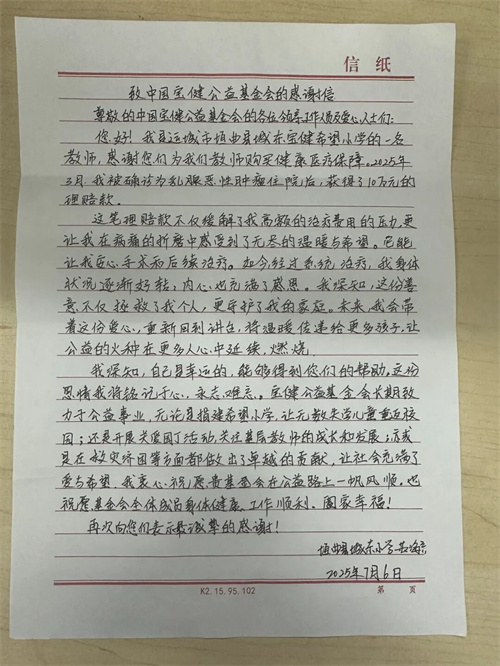 信 纸
致中国宝健公益基金会的感谢信
尊敬的中国宝健公益基金会的各位领导、工作人员及爱心人士们:
您好!我是运城市垣曲县城东宝健希望小学的一名
教师,感谢您们为我们教师购买健康医疗保障。2025年
3月,我被确诊为乳腺恶性肿瘤住院后,获得了10万元的
理赔款。
这笔理赔款不仅缓解了我高额的治疗费用的压力,更
让我在病痛的折磨中感受到了无尽的温暖与希望。它能
让我安心手术和后续治疗。如今,经过系统治疗,我身体
状况逐渐好转,内心也充满了感恩。我深知,这份善
意不仅拯救了我个人,更守护了我的家庭。未来,我会带
着这份爱心,重新回到讲台,将温暖传递给更多孩子,让
公益的火种在更多人心中延续,燃烧。
我深知,自己是幸运的,能够得到你们的帮助。这份
恩情我将铭记于心,永志难忘。宝健公益基金会长期致
力于公益事业,无论是捐建希望小学,让无数失学儿童重返校
园;还是开展关爱园丁活动,关注基层教师的成长和发展;亦或
是在救灾济困等方面都做出了卓越的贡献,让社会充满了
爱与希望。我衷心祝愿贵基金会在公益路上一帆风顺,也
祝愿基金会全体成员身体健康、工作顺利、阖家幸福!
再次向您们表示最诚挚的感谢!
垣曲县城东小学
2025年7月6日
K2.15.95.102
第 页